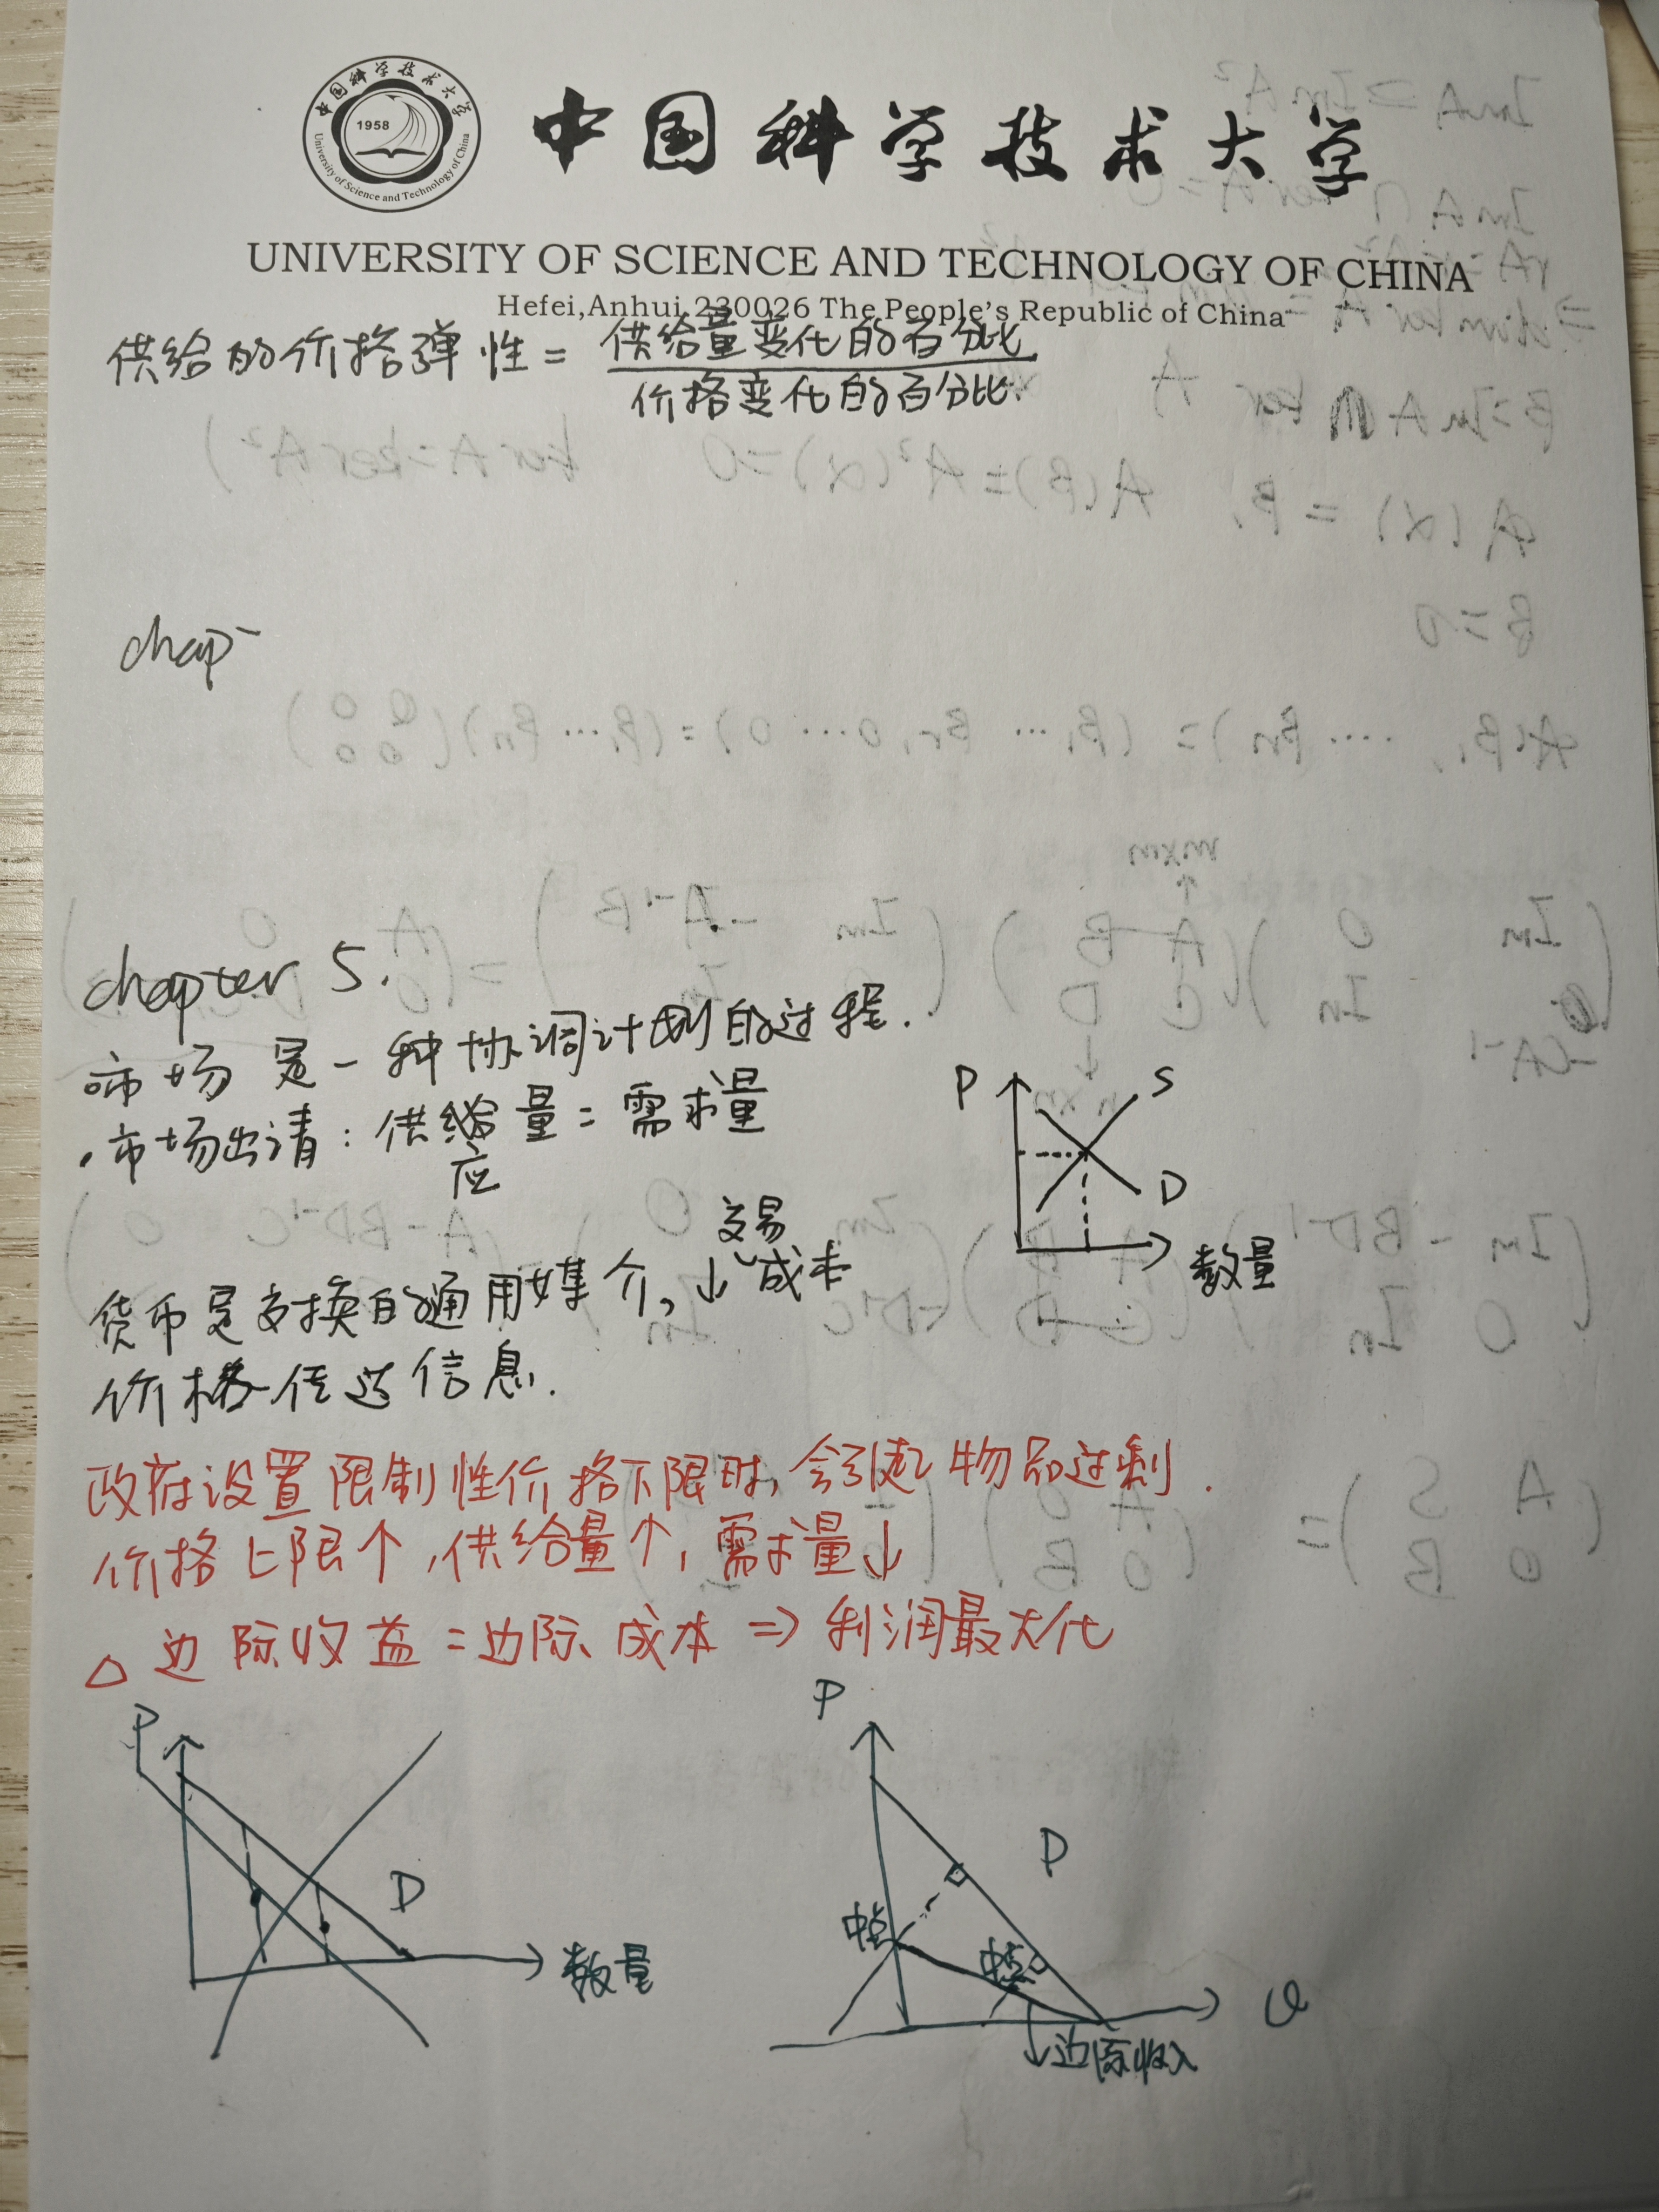 中国科学技术大学
1958
University of Science and Technology of China
中国科学技术大学
UNIVERSITY OF SCIENCE AND TECHNOLOGY OF CHINA
Hefei,Anhui,230026 The People's Republic of China
供给的价格弹性 = 供给量变化的百分比
价格变化的百分比.
chap
chapter 5.
市场是一种协调计划的过程.
市场出清: 供给量 = 需求量
应
P
S
D
数量
交易
货币是交换的通用媒介, ↓成本
价格传达信息.
政府设置限制性价格下限时, 会引起物品过剩.
价格上限个, 供给量↑, 需求量↓
△ 边际收益 = 边际成本 ⇒ 利润最大化
P
D
数量
P
D
中点
中点
Q
↓边际收入